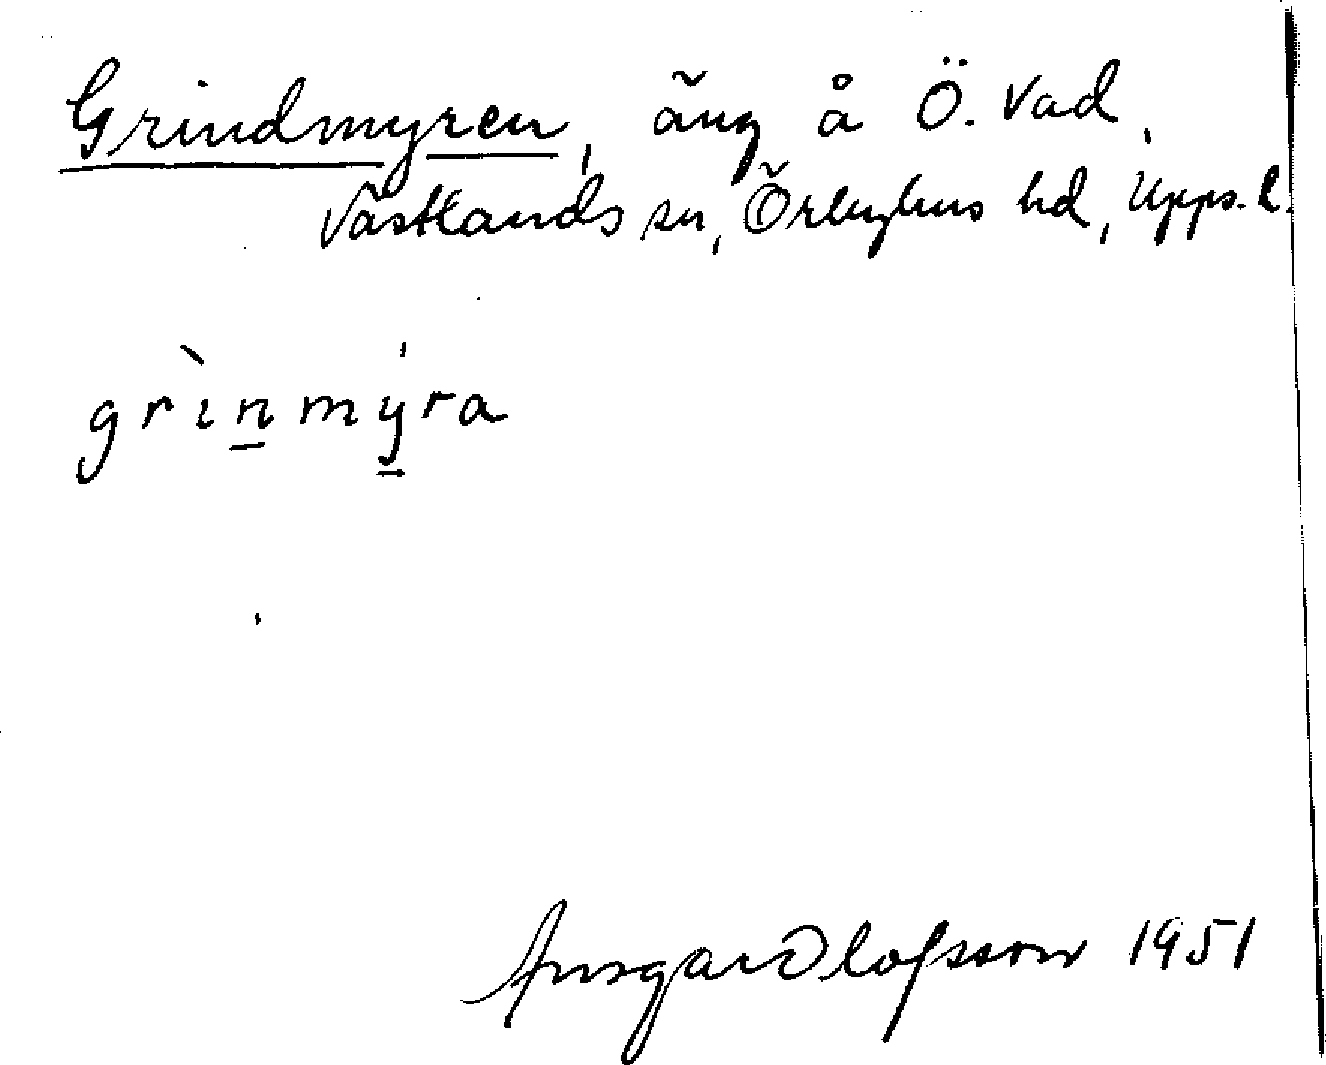 Grindmyren, äng å Ö. Vad,
Västlands sn, Örbyhus hd, Upps. l.
grìn̲mý̲ra
Ansgar Olofsson 1951